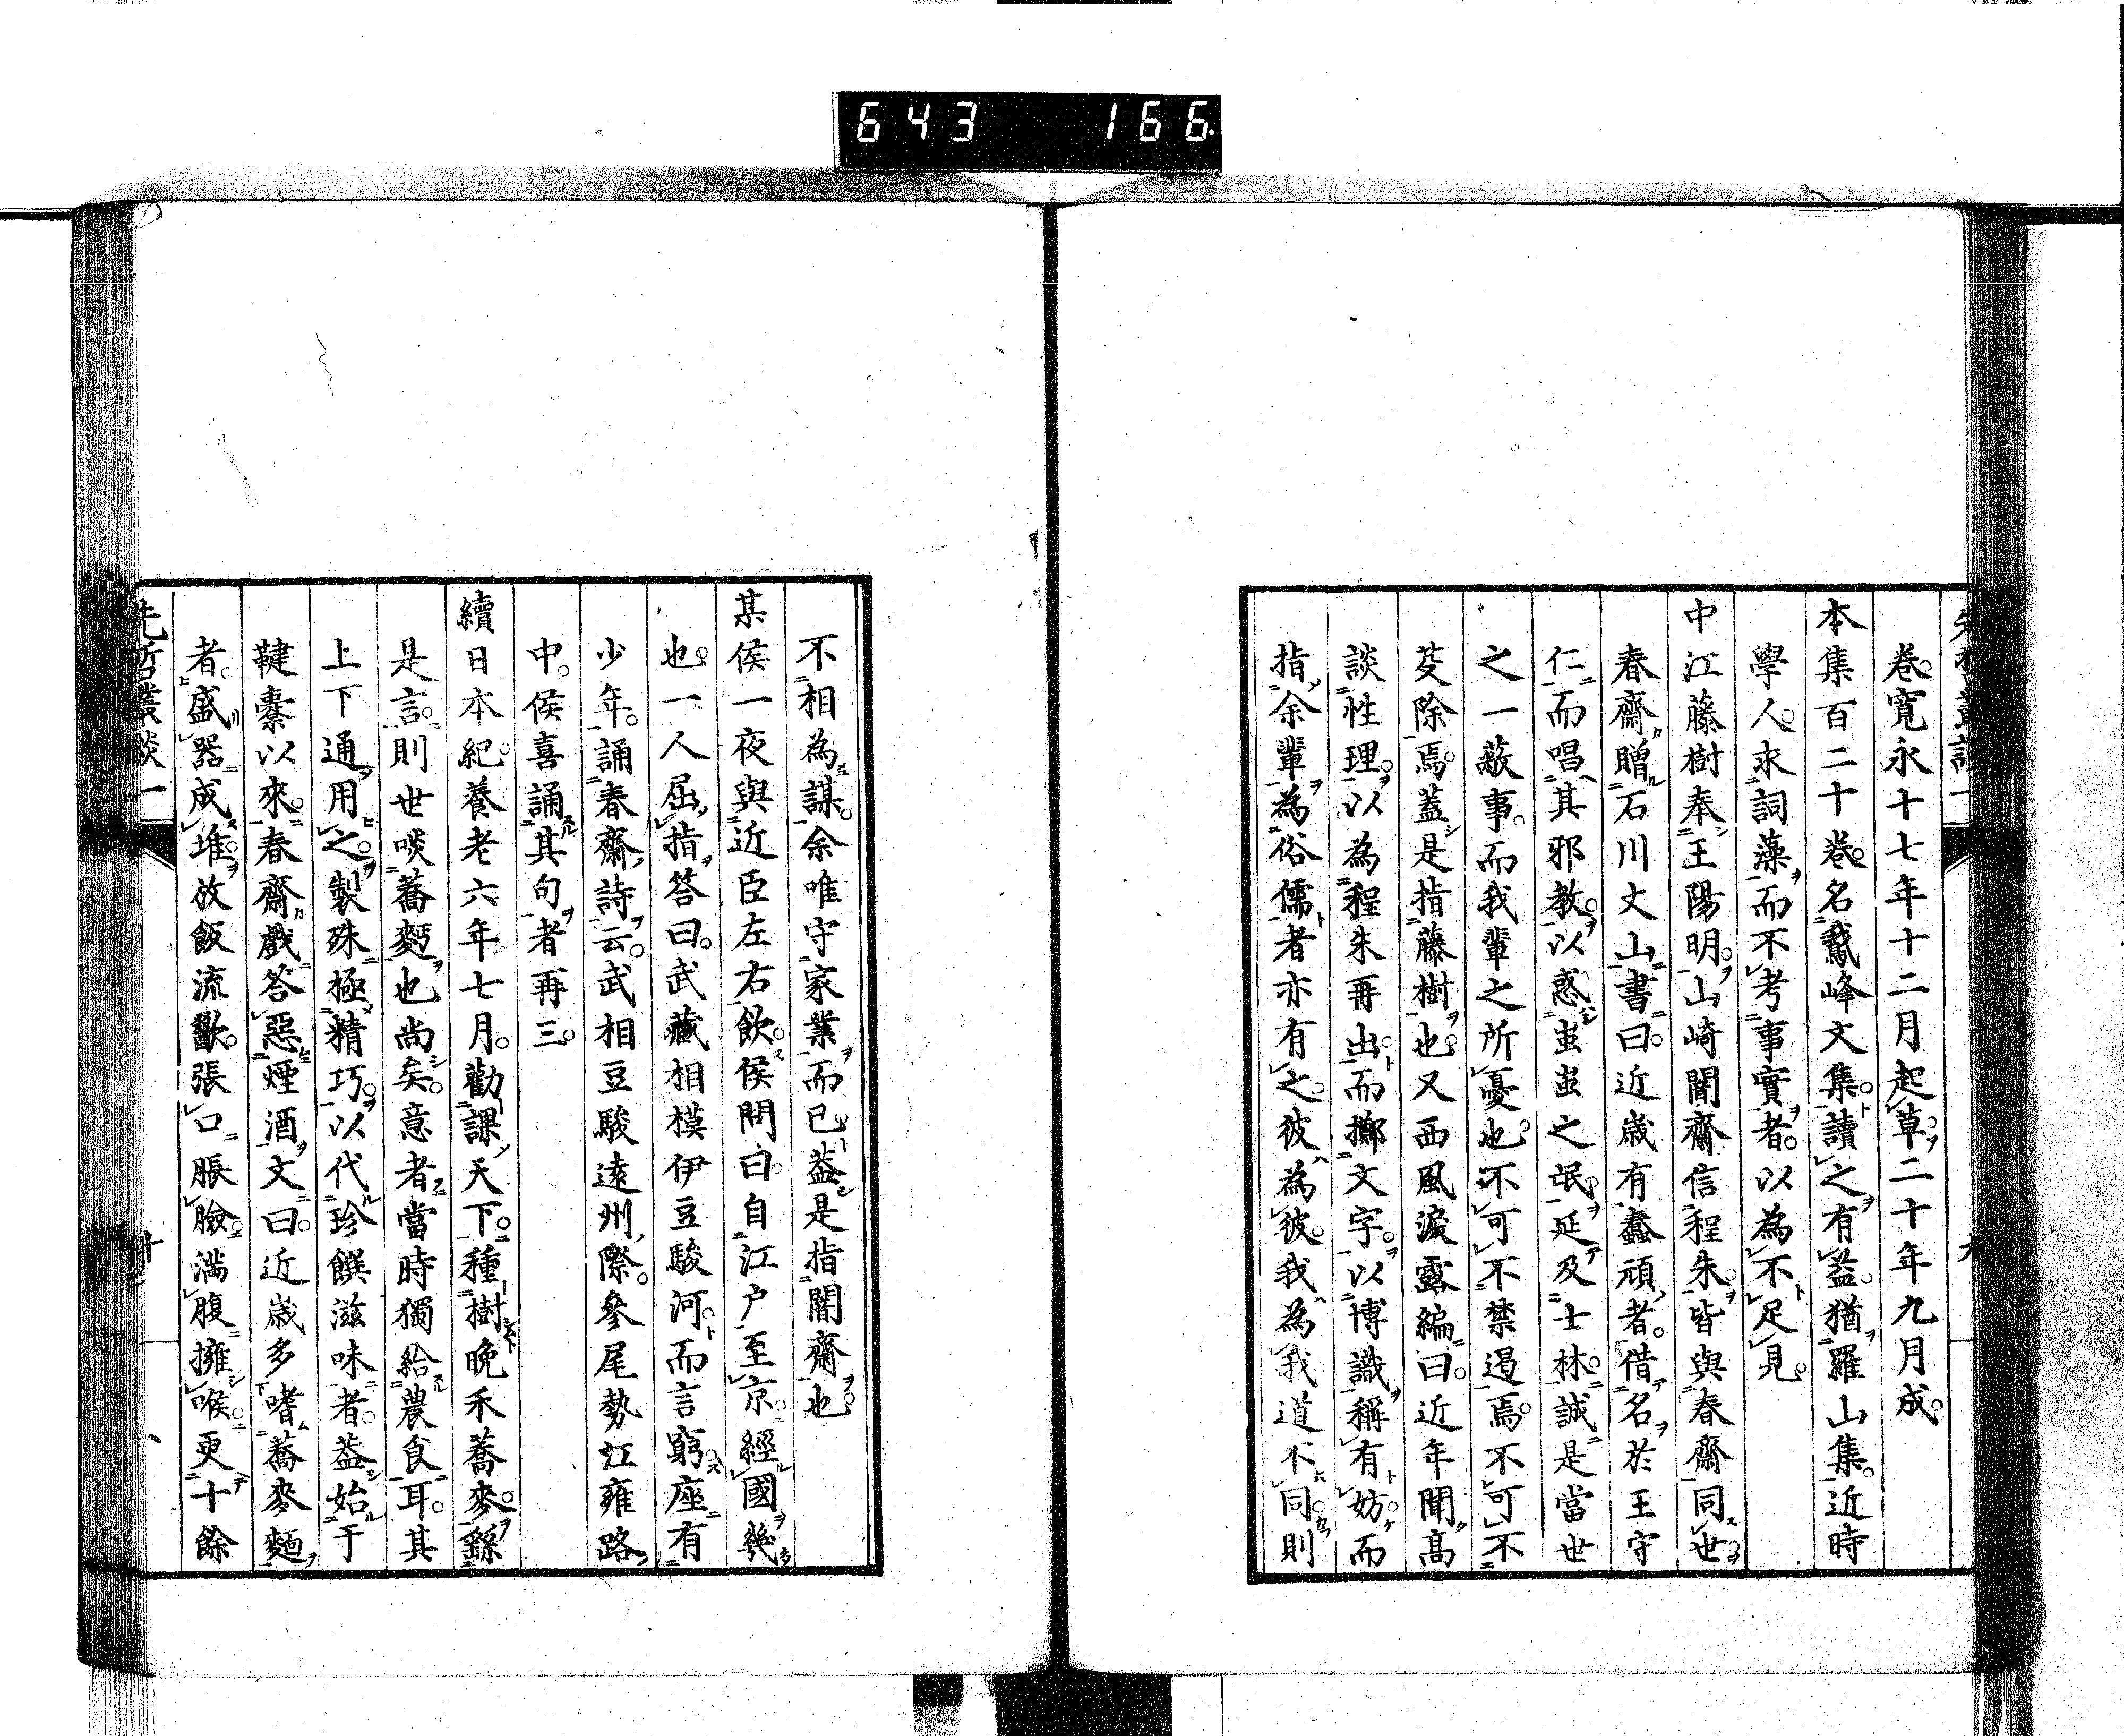 643 166
先哲叢談一 九
卷。寛永十七年十二月起草。二十年九月成。
本集百二十卷。名鵞峰文集。讀之有益。猶羅山集。近時
學人。求詞藻而不考事實者。以為不足見。
中江藤樹奉王陽明。山崎闇齋信程朱。皆與春齋同世。
春齋贈石川丈山書曰。近歳有蠢頑者。借名於王守
仁而唱其邪教。以惑蚩蚩之氓延及士林。誠是當世
之一敵事。而我輩之所憂也。不可不禁遏焉。不可不
芟除焉。蓋是指藤樹也。又西風淚露編曰。近年聞高
談性理。以為程朱再出。而擲文字。以博識稱有妨。而
指余輩為俗儒者亦有之。彼為彼。我為我道不同則
不相為謀。余唯守家業而已。蓋是指闇齋也。
某侯一夜與近臣左右飲。侯問曰。自江戸至京。經國幾
也。一人屈指答曰。武藏相模伊豆駿河。而言窮。座有
少年。誦春齋詩云。武相豆駿遠州際。參尾勢江雍路
中。侯喜誦其句者再三。
續日本紀。養老六年七月。勸課天下。種樹晩禾蕎麥。繇
是言。則世啖蕎麪也尚矣。意者當時獨給農食耳。其
上下通用之。製殊極精巧。以代珍饌滋味者。蓋始于
鞬櫜以來。春齋戲答惡煙酒文曰。近歳多嗜蕎麥麵
者。盛器成堆。放飯流歠。張口脹臉。滿腹擁喉。更十餘
先哲叢談一 十